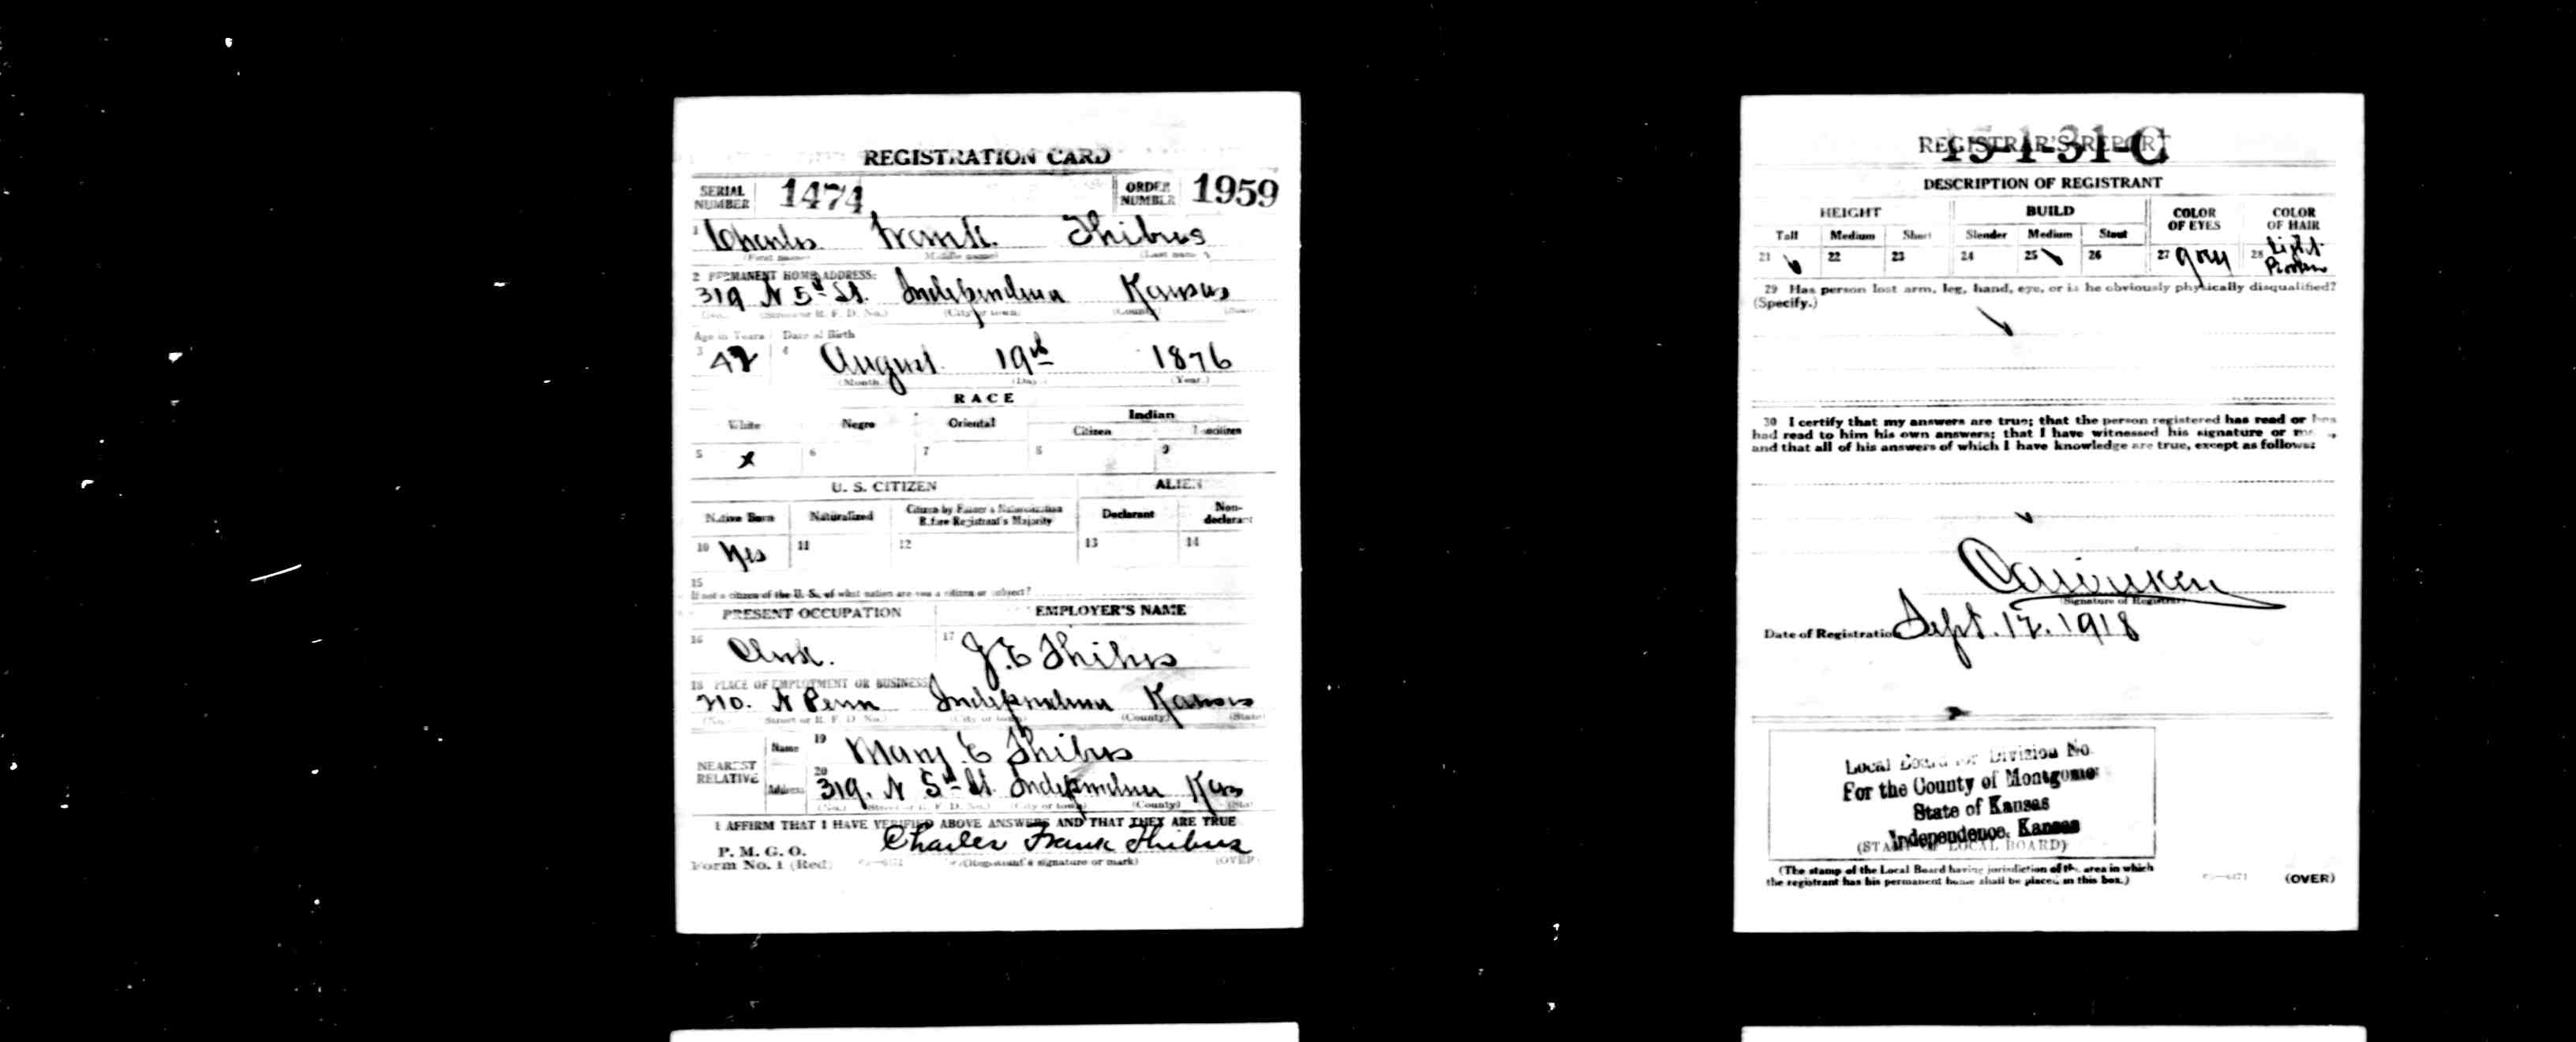 REGISTRATION CARD
SERIAL NUMBER 1474 ORDER NUMBER 1959
1 Charles Frank Thibus
(First name) (Middle name) (Last name)
2 PERMANENT HOME ADDRESS:
319 N 5th St. Independence Kansas
(No.) (Street or R. F. D. No.) (City or town) (County) (State)
Age in Years Date of Birth
3 42 4 August 19th 1876
(Month.) (Day.) (Year.)
RACE
White Negro Oriental Indian
Citizen Noncitizen
5 x 6 7 8 9
U. S. CITIZEN ALIEN
Native Born Naturalized Citizen by Father's Naturalization Before Registrant's Majority Declarant Non-declarant
10 Yes 11 12 13 14
15
If not a citizen of the U. S., of what nation are you a citizen or subject?
PRESENT OCCUPATION EMPLOYER'S NAME
16 Clerk. 17 J. E Thibus
18 PLACE OF EMPLOYMENT OR BUSINESS:
210. N Penn Independence Kansas
(No.) (Street or R. F. D. No.) (City or town) (County) (State)
NEAREST RELATIVE
Name 19 Mary E Thibus
Address 20 319. N 5th St. Independence Kas
(No.) (Street or R. F. D. No.) (City or town) (County) (State)
I AFFIRM THAT I HAVE VERIFIED ABOVE ANSWERS AND THAT THEY ARE TRUE
P. M. G. O.
Form No. 1 (Red) Charles Frank Thibus
(Registrant's signature or mark) (OVER)
REGISTRAR'S REPORT
15-1-31-C
DESCRIPTION OF REGISTRANT
HEIGHT BUILD COLOR OF EYES COLOR OF HAIR
Tall Medium Short Slender Medium Stout
21 22 23 24 25 26 27 gray 28 Light Brown
29 Has person lost arm, leg, hand, eye, or is he obviously physically disqualified?
(Specify.)
30 I certify that my answers are true; that the person registered has read or has
had read to him his own answers; that I have witnessed his signature or
and that all of his answers of which I have knowledge are true, except as follows:
(Signature of Registrar)
Date of Registration Sept. 12. 1918
Local Board for Division No.
For the County of Montgomery
State of Kansas
Independence, Kansas
(STAMP OF LOCAL BOARD)
(The stamp of the Local Board having jurisdiction of the area in which
the registrant has his permanent home shall be placed in this box.)
(OVER)